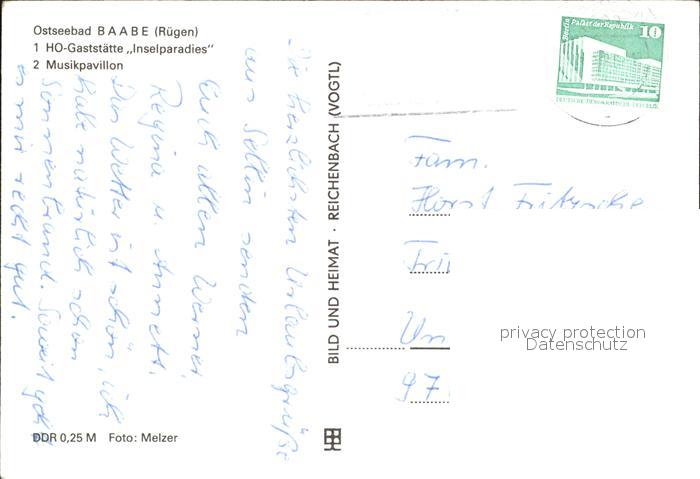 Ostseebad BAABE (Rügen)
1 HO-Gaststätte „Inselparadies"
2 Musikpavillon
Die herzlichsten Urlaubsgrüße
aus Sellin senden
Euch allen Werner,
Regina u. Annett.
Das Wetter ist schön, ich
habe natürlich schon
Sonnenbrand. Soweit geht
es mir recht gut.
DDR 0,25 M Foto: Melzer
BILD UND HEIMAT · REICHENBACH (VOGTL)
Berlin Palast der Republik 10
DEUTSCHE DEMOKRATISCHE REPUBLIK
Fam.
Horst Fritzsche
Un
97
privacy protection
Datenschutz